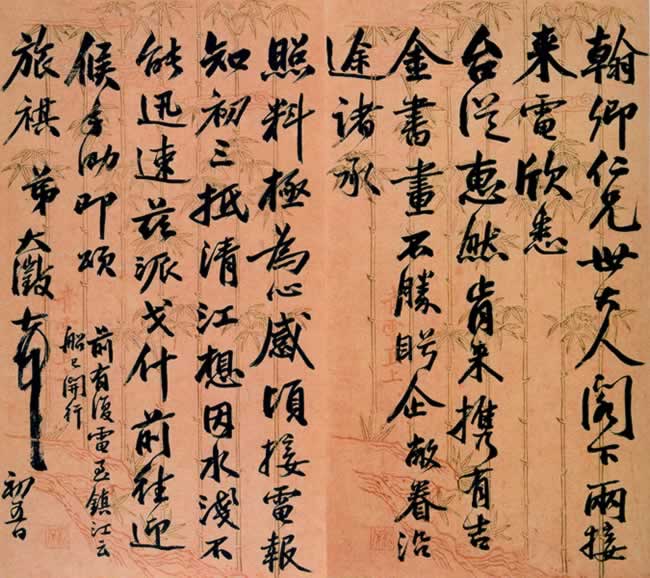 翰卿仁兄世大人閣下兩接
来電欣悉
台從惠然肯来携有吉
金書畫不勝盻企敝眷沿
途諸承
照料極為心感頃接電報
知初三抵清江想因水淺不
能迅速茲派戈什前往迎
候手泐即頌
旅祺 弟大澂頓首
前有復電至鎮江云
船已開行
初五日